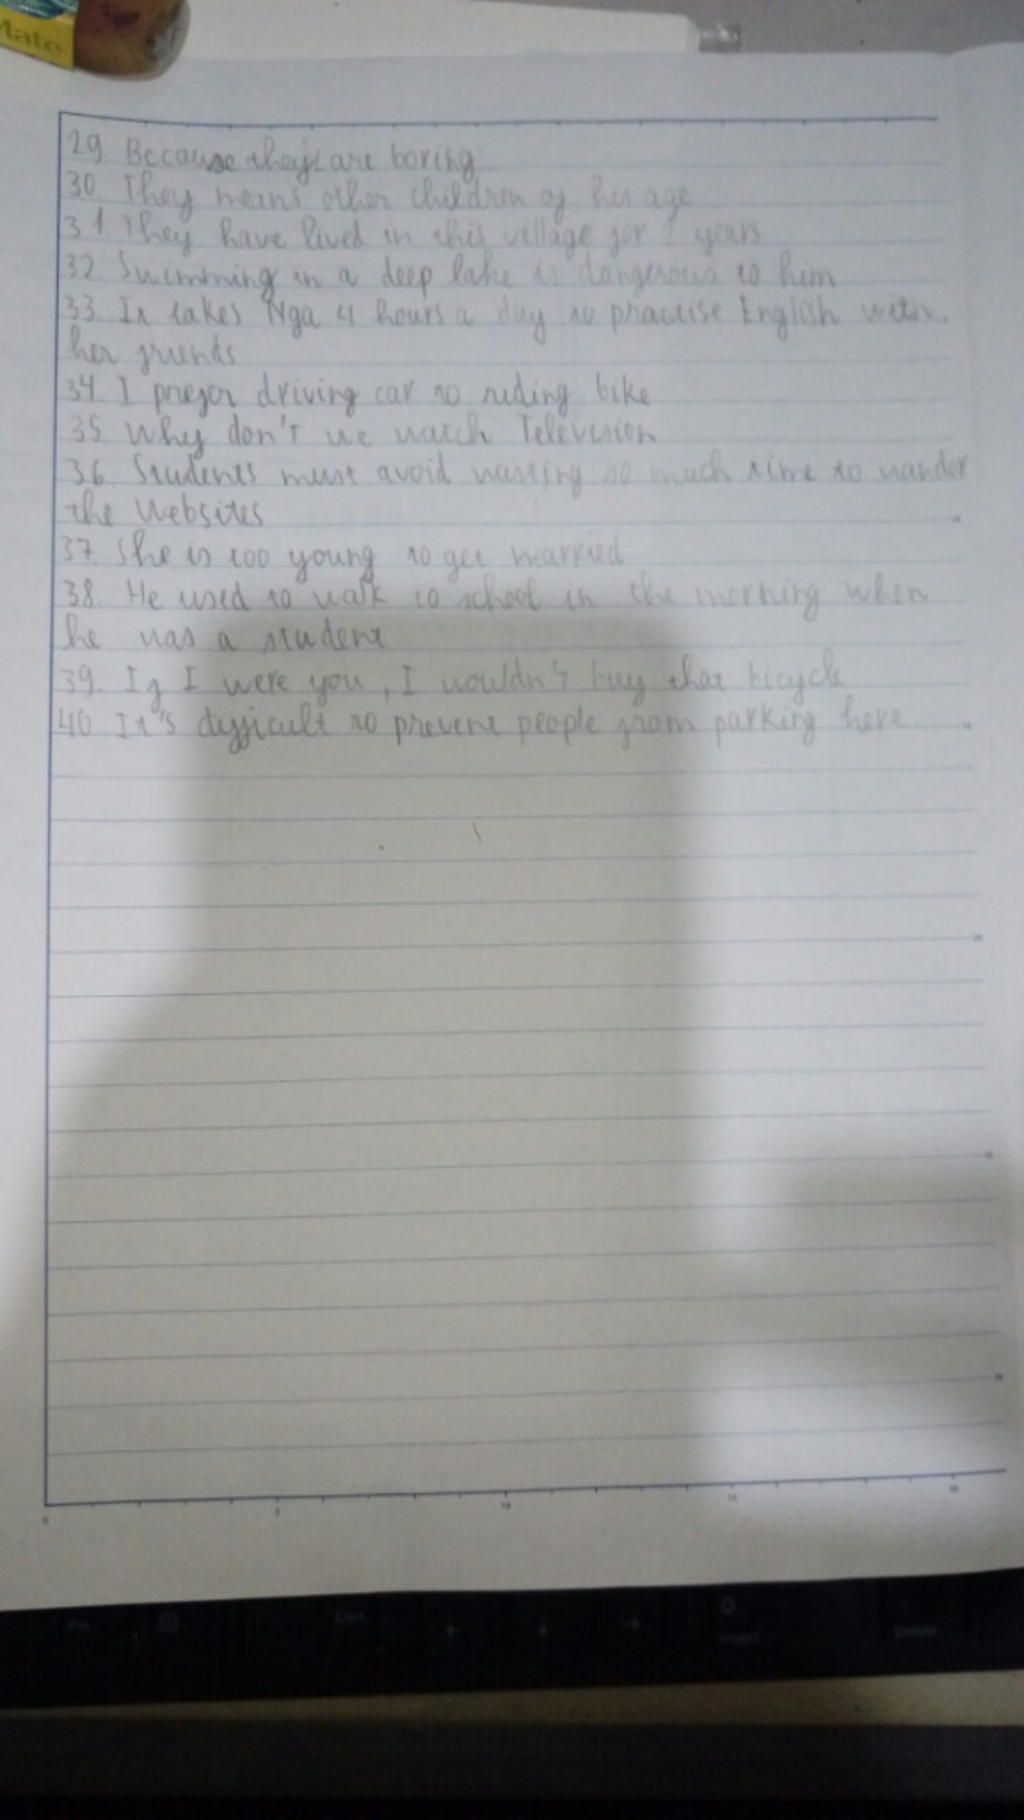 Mate
29. Because they are boring
30. They means other children of his age
31. They have lived in this village for 2 years
32. Swimming in a deep lake is dangerous to him
33. It takes Nga 4 hours a day to practise English with.
her friends
34. I prefer driving car to riding bike
35. Why don't we watch Television
36. Students must avoid wasting so much time to wander
the Websites
37. She is too young to get married
38. He used to walk to school in the morning when
he was a student
39. If I were you, I wouldn't buy that bicycle
40. It's difficult to prevent people from parking here
0 5 10 15 20
Insert
Delete